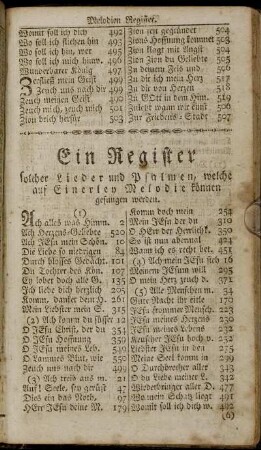 Melodien Register.
Womit soll ich dich 492
Wo soll ich fliehen hin 493
Wo soll ich hin, wer 495
Wo soll ich mich hinw. 496
Wunderbarer König 497
Zerfließ mein Geist 499
Zeuch mich nach dir 499
Zeuch meinen Geist
Zeuch m. d. zeuch mich 501
Zion brich herfür 503
Zion fest gegründet 504
Zions Hoffnung kommet 503
Zion klagt mit Angst 504
Zion Zion du Geliebte 505
Zu deinem Fels und 506
Zu dir ich mein Herz 507
Zu dir von Herzen 508
Zu GOtt in dem Him. 509
Zuletzt
Zur Friedens-Stadt 507
Ein Register
solcher Lieder und Psalmen, welche
auf Einerley Melodie können
gesungen werden.
(1)
Ach alles was Himm. 2
Ach Herzens-Geliebte 520
Ach JEsu mein Schön. 10
Die Liebe so niedrigen 84
Durch blosses Gedächt. 101
Du Tochter des Kön. 107
Ey lobet doch alle G. 135
Ich liebe dich herzlich 205
Komm, danket dem H. 261
Mein Liebster mein S. 315
(2) Ach komm du süsser 12
O JEsu Christ, der du 351
O JEsu Hoffnung 359
O JEsu meines Leb. 549
O Lammes Blut, wie 550
Zeuch uns nach dir 499
(3) Ach treib aus m. 21
Auf! Seele, sey gerüst 47
Dies ein das Noth, 97
HErr JEsu deine M. 179
Komm doch mein 254
Mein JEsu der du 310
O HErr der Herrlichk.
So ist nun abermal 421
Wann ich es recht bet. 451
(4) Ach JEsu sieh 16
Meinem JEsum will 295
O mein Herz zeuch 372
(5) Alle Menschen m. 34
Gute Nacht ihr eitle 170
JEsu frommer Mensch. 223
JEsu meines Herzens 230
JEsu meines Lebens 232
Keuscher JEsu hoch v. 252
Liebster JEsu in den 275
Meine Seel komm in 290
O Durchbrecher aller 343
O du Liebe meiner L. 342
Wiederbringer aller D. 477
Wo mein Schatz liegt 491
Womit soll ich dich w. 492
(6)